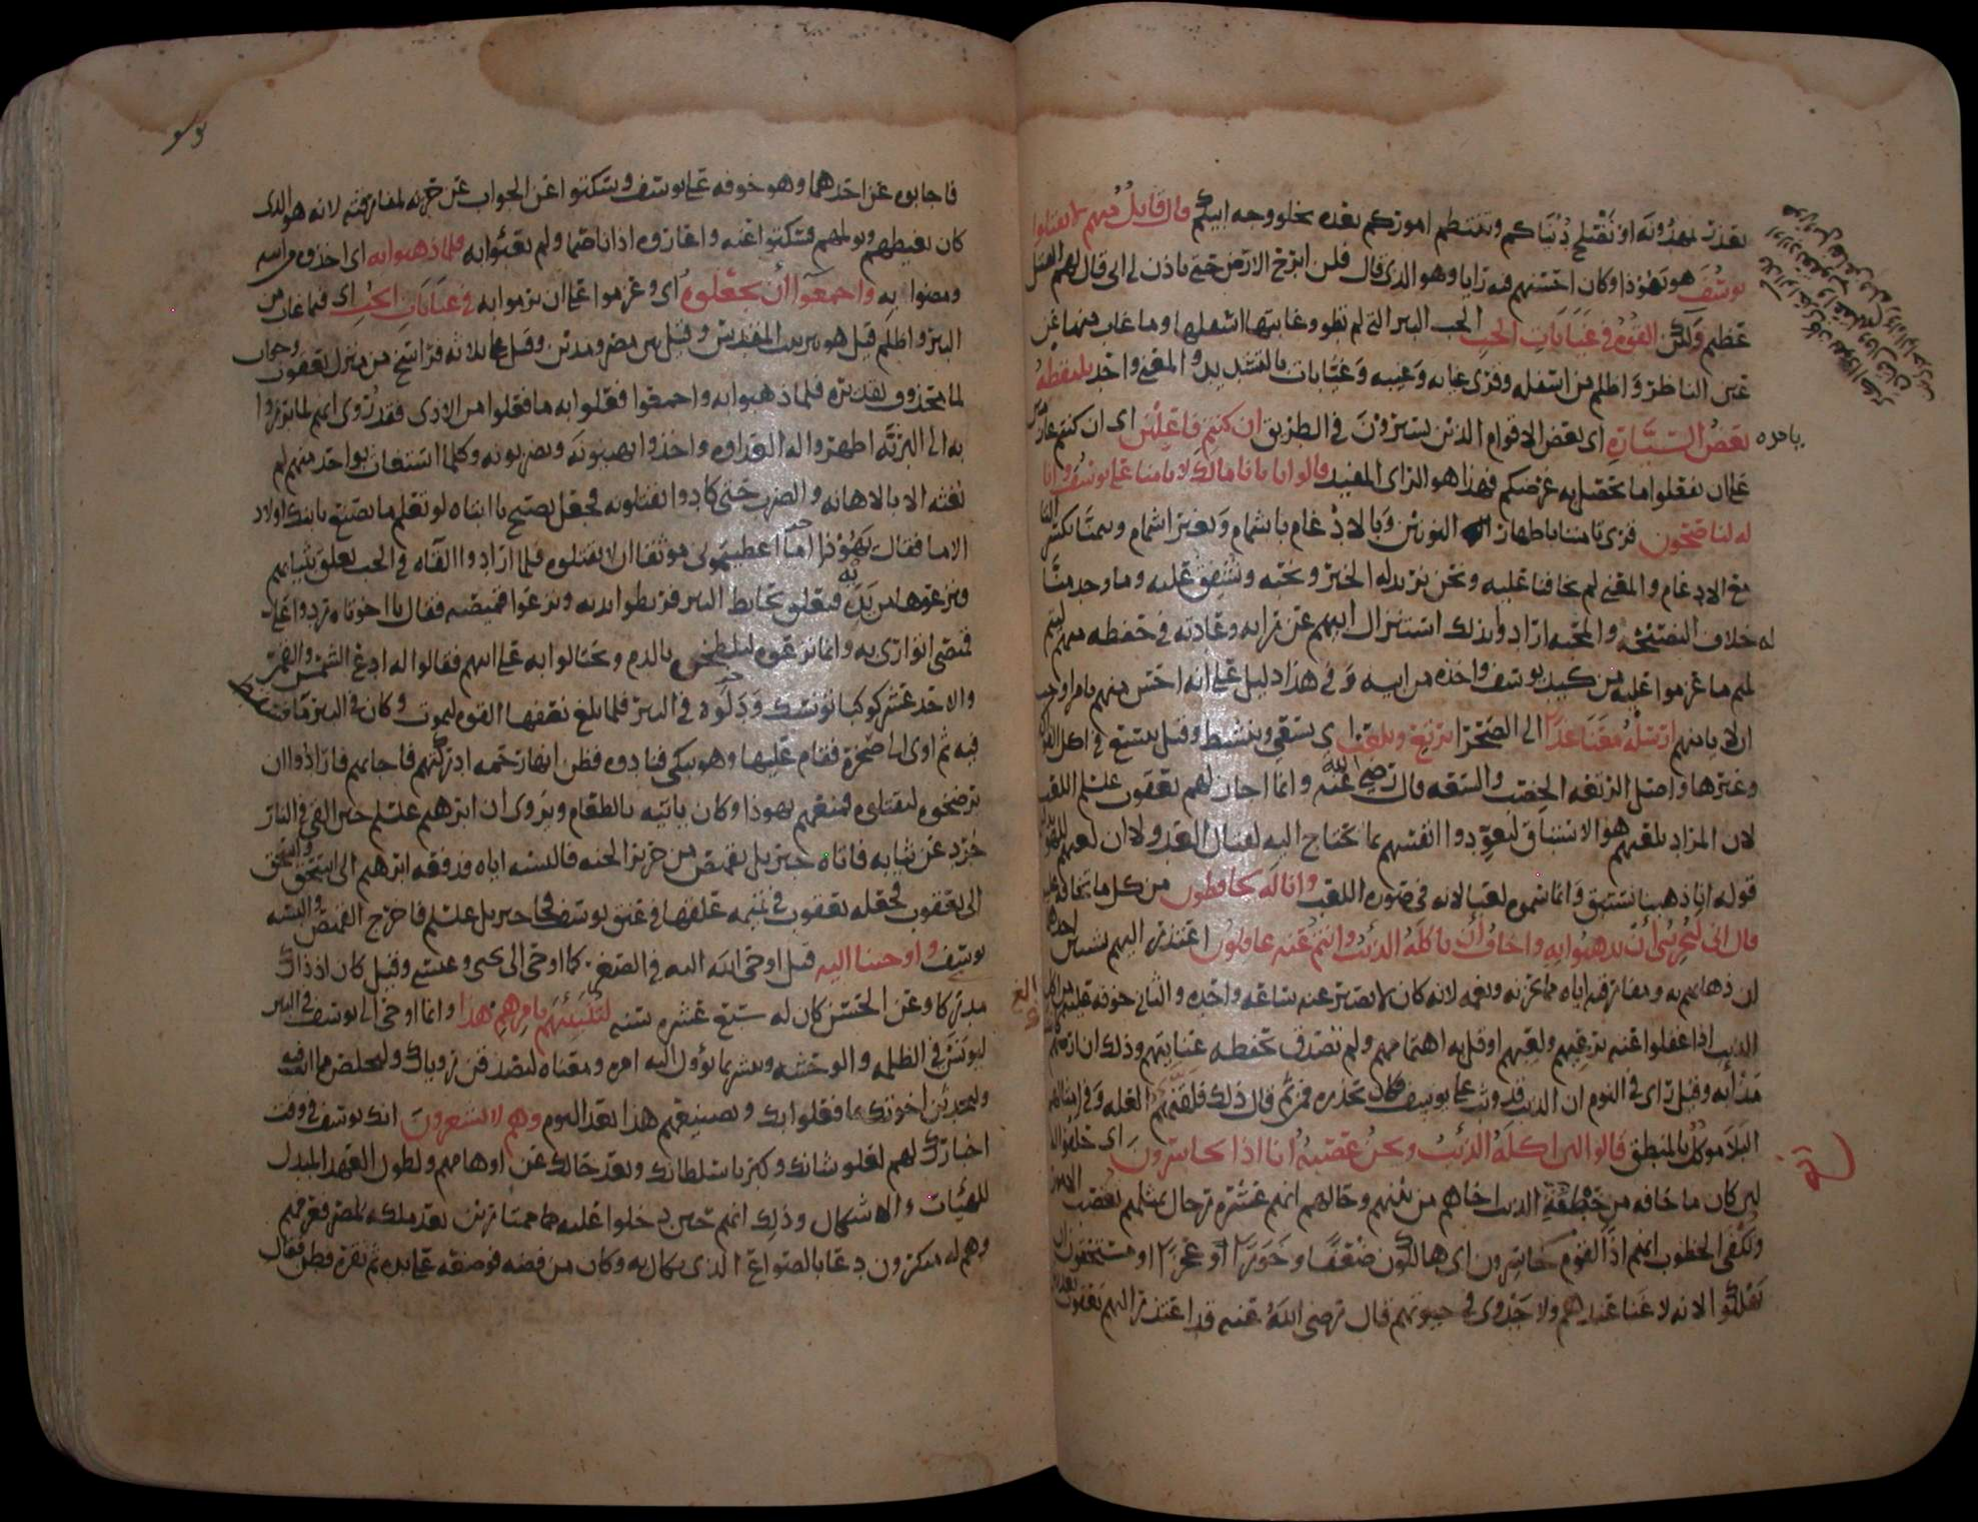 بعذر تمهدونه او تصلح دنياكم وتنتظم اموركم بعده بخلو وجه ابيكم قال قايل منهم لا تقتلوا
يوسف هو يهوذا وكان احسنهم فيه رايا وهو الذي قال فلن ابرح الارض حتى ياذن لي ابي قال لهم القتل
عظيم ولكن القوه في غيابات الجب الجب البير التي لم تطو وغيابتها اسفلها وما غاب منها عن
عين الناظر واظلم من اسفله وقرى غيابه وغيبه وغيابات بالتشديد والمعنى واحد يلتقطه
بعض السيارة اي بعض الاقوام الذين يسيرون في الطريق ان كنتم فاعلين اي ان كنتم عازمين
على ان تفعلوا ما يحصل به غرضكم فهذا هو الراي المفيد قالوا يا ابانا مالك لا تامنا على يوسف وانا
له لناصحون قرى تامننا باظهار النونين وبالادغام باشمام وبغير اشمام وتيمنا بكسر التا
مع الادغام والمعنى لم تخافنا عليه ونحن نريد له الخير ونحبه ونشفق عليه وما وجد منا
له خلاف النصيحة والمحبه ارادوا بذلك استنزال ابيهم عن رايه وعادته في حفظه منهم
لما عزموا عليه من كيد يوسف واخذه من ابيه وفي هذا دليل على انه احس منهم بامر اوجب
ان لا يامنهم ارسله معنا غدا الى الصحرا يرتع ويلعب اي يسقي وينشط وقيل يتسع في اكل الفواكه
وغيرها واصل الرتعه الخصب والسعه قال رضي الله عنه وانما اجاز لهم يعقوب علسلم اللعب
لان المراد بلعبهم هو الاستباق ليعودوا انفسهم بما يحتاج اليه لقتال العدو لا ان لعبهم للهو
قوله انا ذهبنا نستبق وانما سموه لعبا لانه في صوره اللعب وانا له لحافظون من كل ما تخافه عليه
قال اني ليحزنني ان تذهبوا به واخاف ان ياكله الذئب وانتم عنه غافلون اعتذر اليهم بشيين احدهما
ان ذهابهم به ومفارقته اياه مما يحزنه ويغمه لانه كان لا يصبر عنه ساعه واحده والثاني خوفه عليه من اكل
الذيب اذا غفلوا عنه برعيهم ولعبهم او قل به اهتمامهم ولم تصدق بحفظه عنايتهم وذلك ان ارضهم
مذابه وقيل راى في النوم ان الذيب قد وثب على يوسف فكان يحذره فمن ثم قال ذلك فلقنهم العله وفي امثالهم
البلا موكل بالمنطق قالوا لئن اكله الذئب ونحن عصبة انا اذا لخاسرون اي حلفوا له
لئن كان ما خافه من خطفة الذيب اخاهم من بينهم وحالهم انهم عشرة رجال بمثلهم تعصب الامور
وتكفى الخطوب انهم اذا لقوم خاسرون اي هالكون ضعفا وخورا او عجزا او مستحقون ان
يهلكوا لانه لا غنا عندهم ولا جدوى في حيوتهم قال رضي الله عنه قد اعتذر اليهم يعقوب
باحده
فاجابوه عن احدهما وهو خوفه على يوسف وسكتوا عن الجواب عن حزنه لمفارقته لانه هو الذي
كان يغيظهم ويولمهم فسكتوا عنه واعاروه اذانا صما ولم يعبئوا به فلما ذهبوا به اي اخذوه من ابيه
ومضوا به واجمعوا ان يجعلوه اي وعزموا على ان يرموا به في غيابات الجب اي فيما غاب من
البير واظلم قيل هو بير بيت المقدس وقيل بين مصر ومدين وقيل على ثلاثه فراسخ من منزل يعقوب وجواب
لما محذوف تقديره فلما ذهبوا به واجمعوا فعلوا به ما فعلوا من الاذى فقد روى انهم لما برزوا
به الى البرية اظهروا له العداوه واخذوا يهينونه ويضربونه وكلما استغاث بواحد منهم لم
يغثه الا بالاهانه والضرب حتى كادوا يقتلونه فجعل يصيح يا ابتاه لو تعلم ما يصنع بابنك اولاد
الاما فقال يهوذا اما اعطيتموني موثقا ان لا تقتلوه فلما ارادوا القاه في الجب تعلق بثيابهم
ونزعوها من يده فتعلق بحايط البير فربطوا يديه ونزعوا قميصه فقال يا اخوتاه ردوا علي
قميصي اتوارى به وانما نزعوه ليلطخوه بالدم ويحتالوا به على ابيهم فقالوا له ادع الشمس والقمر
والاحد عشر كوكبا تونسك ودلوه في البير فلما بلغ نصفها القوه ليموت وكان في البير ما فسقط
فيه ثم اوى الى صخرة فقام عليها وهو يبكي فنادوه فظن انها رحمه ادركتهم فاجابهم فارادوا ان
يرضخوه ليقتلوه فمنعهم يهوذا وكان ياتيه بالطعام ويروى ان ابرهيم علسلم حين القي في النار
جرد عن ثيابه فاتاه جبريل بقميص من حرير الجنه فالبسه اياه فدفعه ابرهيم الى اسحق واسحق
الى يعقوب فجعله يعقوب في تميمه علقها في عنق يوسف فجا جبريل علسلم فاخرج القميص والبسه
يوسف واوحينا اليه قيل اوحى الله اليه في الصغر كما اوحى الى يحيى وعيسى وقيل كان اذ ذاك
مدركا وعن الحسن كان له سبع عشره سنه لتنبئنهم بامرهم هذا وانما اوحى الى يوسف في البير
ليونس في الظلمه والوحشه ويبشر بما يؤول اليه امره ومعناه لتصدقن روياك ولتخلصن مما انت فيه
ولتحدثن اخوتك بما فعلوا بك وبصنيعهم هذا بعد اليوم وهم لا يشعرون انك يوسف في وقت
اخبارك لهم لعلو شانك وكبريا سلطانك وبعد حالك عن اوهامهم ولطول العهد المبدل
للهيئات والاشكال وذلك انهم حين دخلوا عليه ممتارين بعد ملكه لمصر فعرفهم
وهم له منكرون دعا بالصواع الذي يكال به وكان من فضه فوضعه على يده ثم نقره فطن فقال